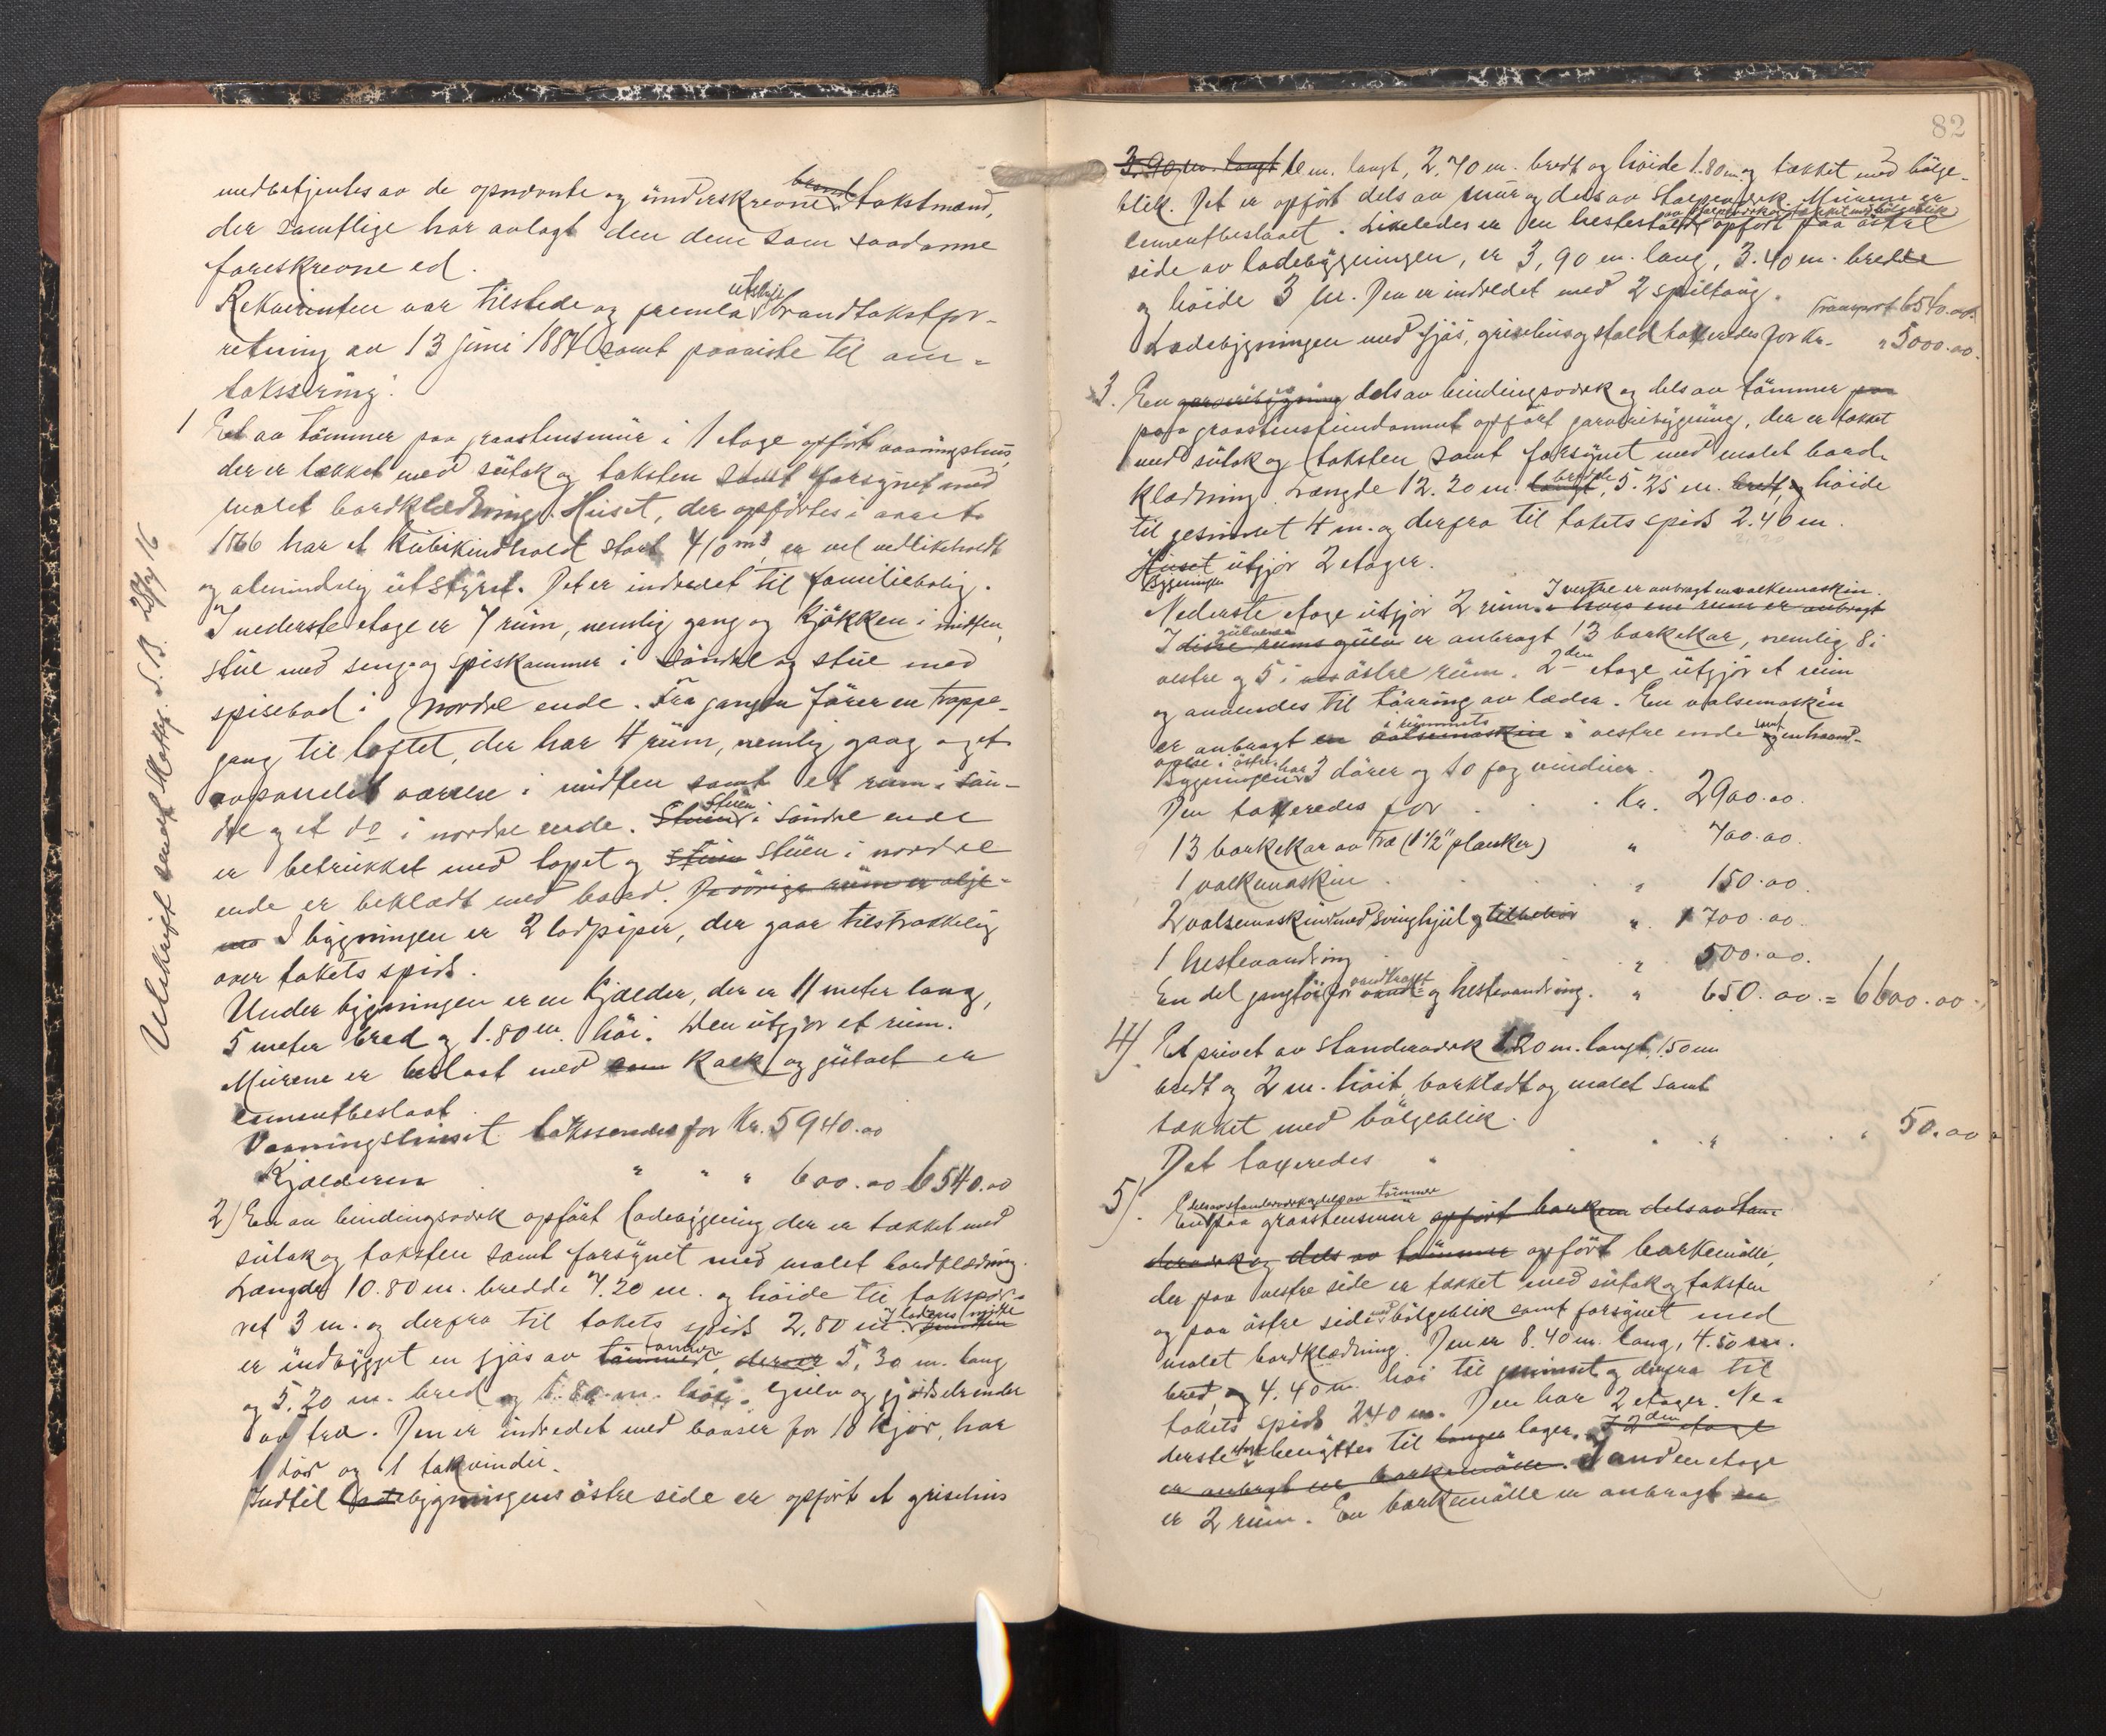 medbetjentes av de opnævnte og underskrevne brand takstmænd,
der samtlige har avlagt den dem som saadanne
foreskrevne ed.
Rekvirenten var tilstede og fremla utskrift brandtakstfor-
retning av 13 juni 1884 samt paaviste til om-
taksering:
1 Et av tömmer paa graastensmur i 1 etage opfört vaaningshus,
der er tækket med sutak og taksten samt forsynet med
malet bordklædning. Huset, der opförtes i aaret
1866 har et kubikindhold stort 410 m3, er vel vedlikeholdt
og almindelig utstyret. Det er indredet til familiebolig.
I nederste etage er 7 rum, nemlig gang og kjökken i midten,
stue med seng- og spiskammer i söndre og stue med
spisebod i nordre ende. Fra gangen förer en trappe-
gang til loftet, der har 4 rum, nemlig gang og et
avpanelet værelse i midten samt et rum i sön-
dre og et do i nordre ende. Stuen i söndre ende
er betrukket med tapet og stuen i nordre
ende er beklædt med bord. De övrige rum er olje-
I bygningen er 2 lodpiper, der gaar tilstrækkelig
over takets spids.
Under bygningen er en kjælder, der er 11 meter lang,
5 meter bred og 1.80 m. höi. Den utgjör et rum.
Murene er beslaat med kalk og gulvet er
cementbeslaat.
Vaaningshuset taksseredes for Kr. 5940.00
Kjælderen " " " 600.00 6540.00
2) En av bindingsverk opfört ladebygning der er tækket med
sutak og taksten samt forsynet med malet bordklædning.
Længde 10.80 m. bredde 7.20 m. og höide til takskjæg-
get 3 m. og derfra til takets spids 2.80 m. I ladens midte
er indbygget en fjös av tömmer, 5,30 m. lang
og 5.20 m. bred og 1.80 m. höi. Gulv og gjödselrender
av træ. Den er indredet med baaser for 10 kjör, har
1 dör og 1 takvindu.
Indtil ladebygningens östre side er opfört et grisehus
Utskrift sendt Matkp. S.B. 28/7 16
82
3,90 m. langt 12 m. langt, 2,40 m. bredt og höide 1.80 m. og tækket med bölge-
blik. Det er opfört dels av mur og dels av stolpeverk. Murene er
cementbeslaaet. Likeledes er en hestestald av stolpeverk og tækket med bölgeblik opfört paa östre
side av ladebygningen, er 3,90 m. lang, 3.40 m. bred
og höide 3 m. Den er indredet med 2 spiltaug.
Transport 6540.00
Ladebygningen med fjös, grisehus og stald taxeredes for Kr. " 5000.00
3. En garveribygning dels av bindingsverk og dels av tömmer paa
paa graastensfundament opfört garveribygning, der er tækket
med sutak og taksten samt forsynet med malet bord-
klædning. Længde 12.20 m. langt, bredde 5.25 m. bredt, og höide
til gesimset 4 m. og derfra til takets spids 2.40 m.
Huset Bygningen utgjör 2 etager.
Nederste etage utgjör 2 rum. I vestre er anbragt en valkemaskin. i hvis ene rum er anbragt
I disse rums gulv gulvene er anbragt 13 barkekar, nemlig 8 i
vestre og 5 i östre rum. 2den etage utgjör et rum
og anvendes til törring av læder. En valsemaskin
er anbragt en valsemaskin i rummets vestre ende samt en haand-
valse i östre. Bygningen har 3 dörer og 10 fag vinduer.
Den taxeredes for Kr. 2900.00.
13 barkekar av træ (1 1/2" planker) " 700.00.
1 valkemaskin " 150.00.
2 valsemaskiner med svinghjul og tilbehör " 1700.00.
1 hestevandring " 500.00.
En del gangtöi for vandkraft og hestevandring. " 650.00 = 6600.00
4) Et privet av standerverk 1.20 m. langt, 1.50 m
bredt og 2 m. höit, bordklædt og malet samt
tækket med bölgeblik.
Det taxeredes " " " 50.00
5). dels av standerverk og dels av tömmer
En paa graastensmur opfört barkem dels av stan-
derverk og dels av tömmer opfört barkemölle,
der paa vestre side er tækket med sutak og taksten
og paa östre side med bölgeblik samt forsynet med
malet bordklædning. Den er 8.40 m. lang, 4.50 m.
bred, og 4.40 m. höi til gesimset og derfra til
takets spids 2.40 m. Den har 2 etager. Ne-
derste etage benyttes til lager. I 2den etage
er anbragt en barkemölle. I anden etage
er 2 rum. En barkemölle er anbragt en